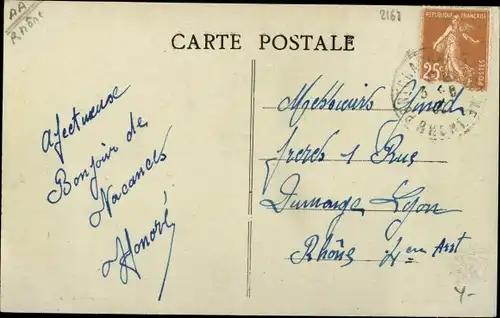 AA
Rhône
2167
CARTE POSTALE
REPUBLIQUE FRANÇAISE
25
POSTES
RHONE
Afectueuse
Bonjour de
Vacances
Honoré
Messieurs
freres 1 Rue
Dumarge Lyon
Rhône 4em Arrt
4-